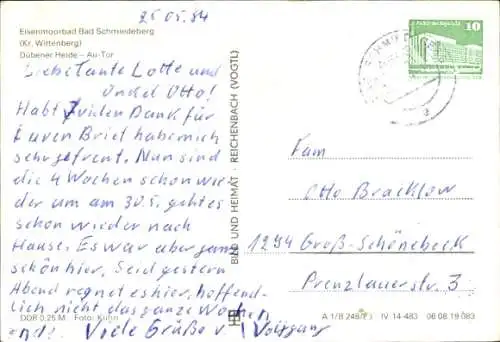 25.05.84
Eisenmoorbad Bad Schmiedeberg
(Kr. Wittenberg)
Dübener Heide – Au-Tor
Liebe Tante Lotte und
Onkel Otto!
Habt vielen Dank für
Euren Brief habe mich
sehr gefreut. Nun sind
die 4 Wochen schon wie
der um am 30.5. geht es
schon wieder nach
Hause. Es war aber ganz
schön hier. Seid gestern
Abend regnet es hier, hoffend-
lich nicht das ganze Wochen
end. Viele Grüße v. Wolfgang
DDR 0,25 M Foto: Kühn
BILD UND HEIMAT · REICHENBACH (VOGTL)
10
Fam
Otto Bracklow
1294 Groß-Schönebeck
Prenzlauerstr. 3
A 1/B 246/83 IV-14-483 06 08 19 083